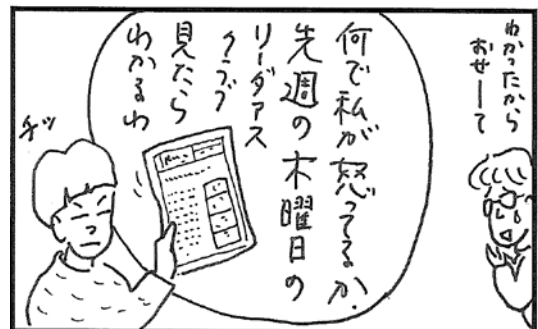 わかったから
おせーて
何で私が怒ってるか
先週の木曜日の
リーダァス
クラブ
見たら
わかるわ
チッ